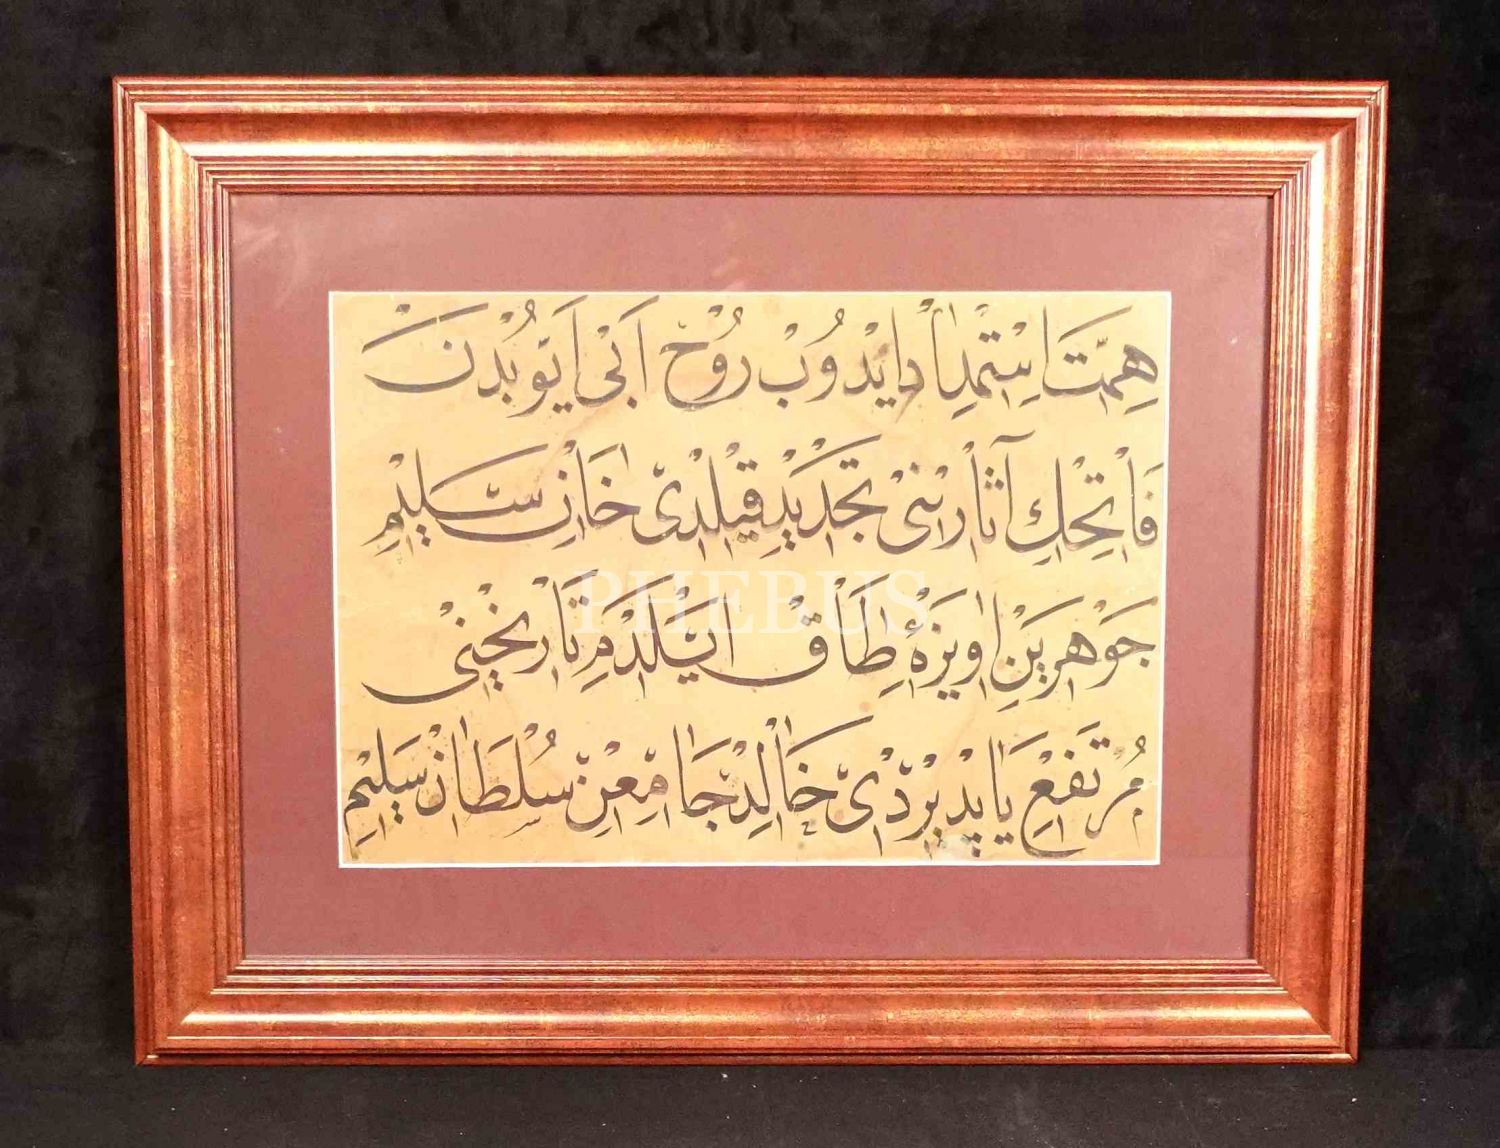 هِمَّتَ اِسْتِمْدَادْ اِيدُوبْ رُوْحِ اَبِى اَيُّوبُدَنْ
فَاتْحِكْ آثَارِينِى تَجْدِيدِ قِيلْدِى خَانِ سَلِيمْ
جَوْهَرِينْ اَوِيزَهِٔ طَاقْ اَيْلَدِمْ تَارِيخِينِى
مُرْتَفِعْ يَاپْدِيرْدِى خَالِدْ جَامِعِنْ سُلْطَانْ سَلِيمْ
PHEBUS